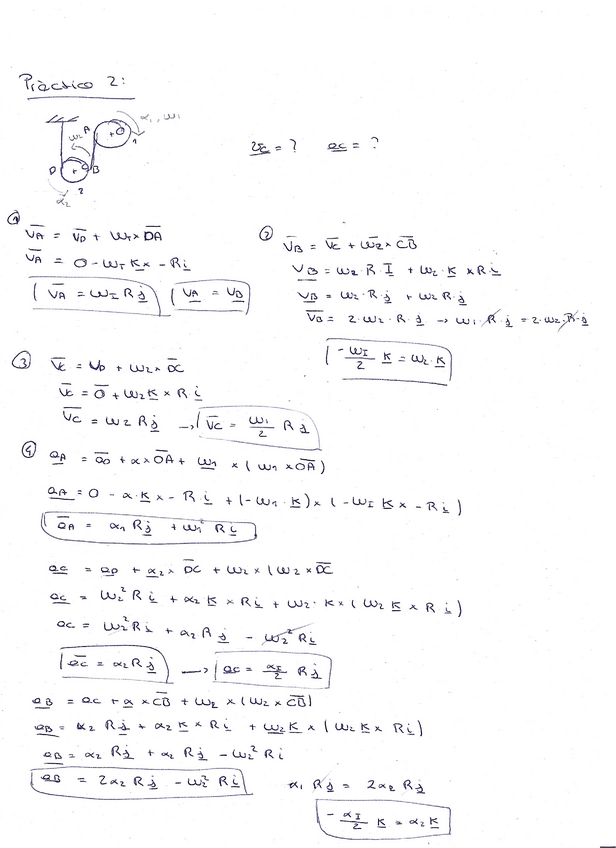 Pràctico 2:
α₁, ω₁
A
O
1
ω₂
D
C
B
2
α₂
v̲c̲ = ? a̲c̲ = ?
①
V̅A = V̅D + ω_I × D̅A̅
V̅A = 0 - ω_I K̲ × - R i̲
V̅A = ω_I R j̲
V̲A = V̲B
②
V̅B = V̅C + ω̅₂ × C̅B̅
V̲B = ω₂ · R · I̲ + ω₂ · K̲ × R i̲
V̲B = ω₂ · R · j̲ + ω₂ R j̲
V̅B = 2 · ω₂ · R · j̲ → ω₁ · R · j̲ = 2 · ω₂ · R · j̲
-ω_I/2 K̲ = ω₂ · K̲
③
V̅C = V_D + ω₂ × D̅C̅
V̅C = 0̅ + ω₂ K × R i̲
V̅C = ω₂ R j̲ → V̅C = ω₁/2 R j̲
④
a̲A = a̅o + α × O̅A̅ + ω₁ × (ω₁ × O̅A̅)
a̲A = 0 - α · K̲ × - R · i̲ + (-ω₁ · K̲) × (-ω_I K̲ × - R i̲)
a̅A = α₁ R j̲ + ω₁² R i̲
a̲c = a̲D + α₂ × D̅C̅ + ω₂ × (ω₂ × D̅C̅)
a̲c = ω₂² R i̲ + α₂ K̲ × R i̲ + ω₂ · K × (ω₂ K̲ × R i̲)
ac = ω₂² R i + α₂ R j̲ - ω₂² R i̲
a̅c = α₂ R j̲ → a̲c = α_I/2 R j̲
a̲B = ac + α × C̅B̅ + ω₂ × (ω₂ × C̅B̅)
a̲B = α₂ R j̲ + α₂ K̲ × R i̲ + ω₂ K̲ × (ω₂ K × R i)
a̲B = α₂ R j + α₂ R j̲ - ω₂² R i
a̲B = 2α₂ R j̲ - ω₂² R i̲
α₁ R j̲ = 2α₂ R j̲
-α_I/2 K̲ = α₂ K̲